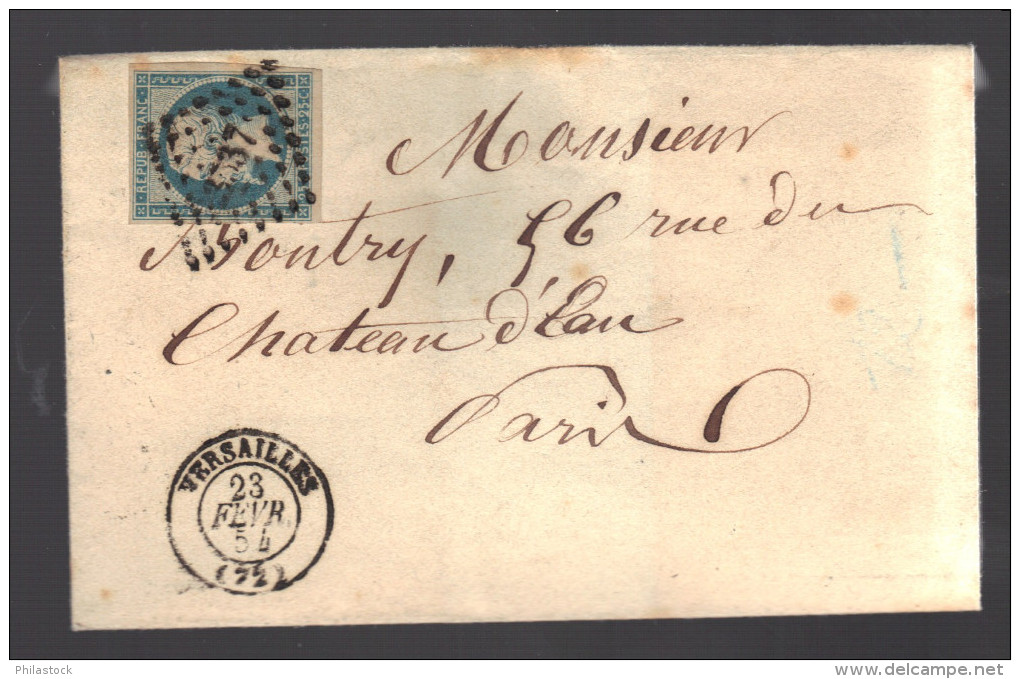 REPUB. FRANC.
Monsieur
Montry, 56 rue du
Chateau d'Eau
Paris
VERSAILLES
23
FEVR.
54
(72)
Philastock
delcampe.net